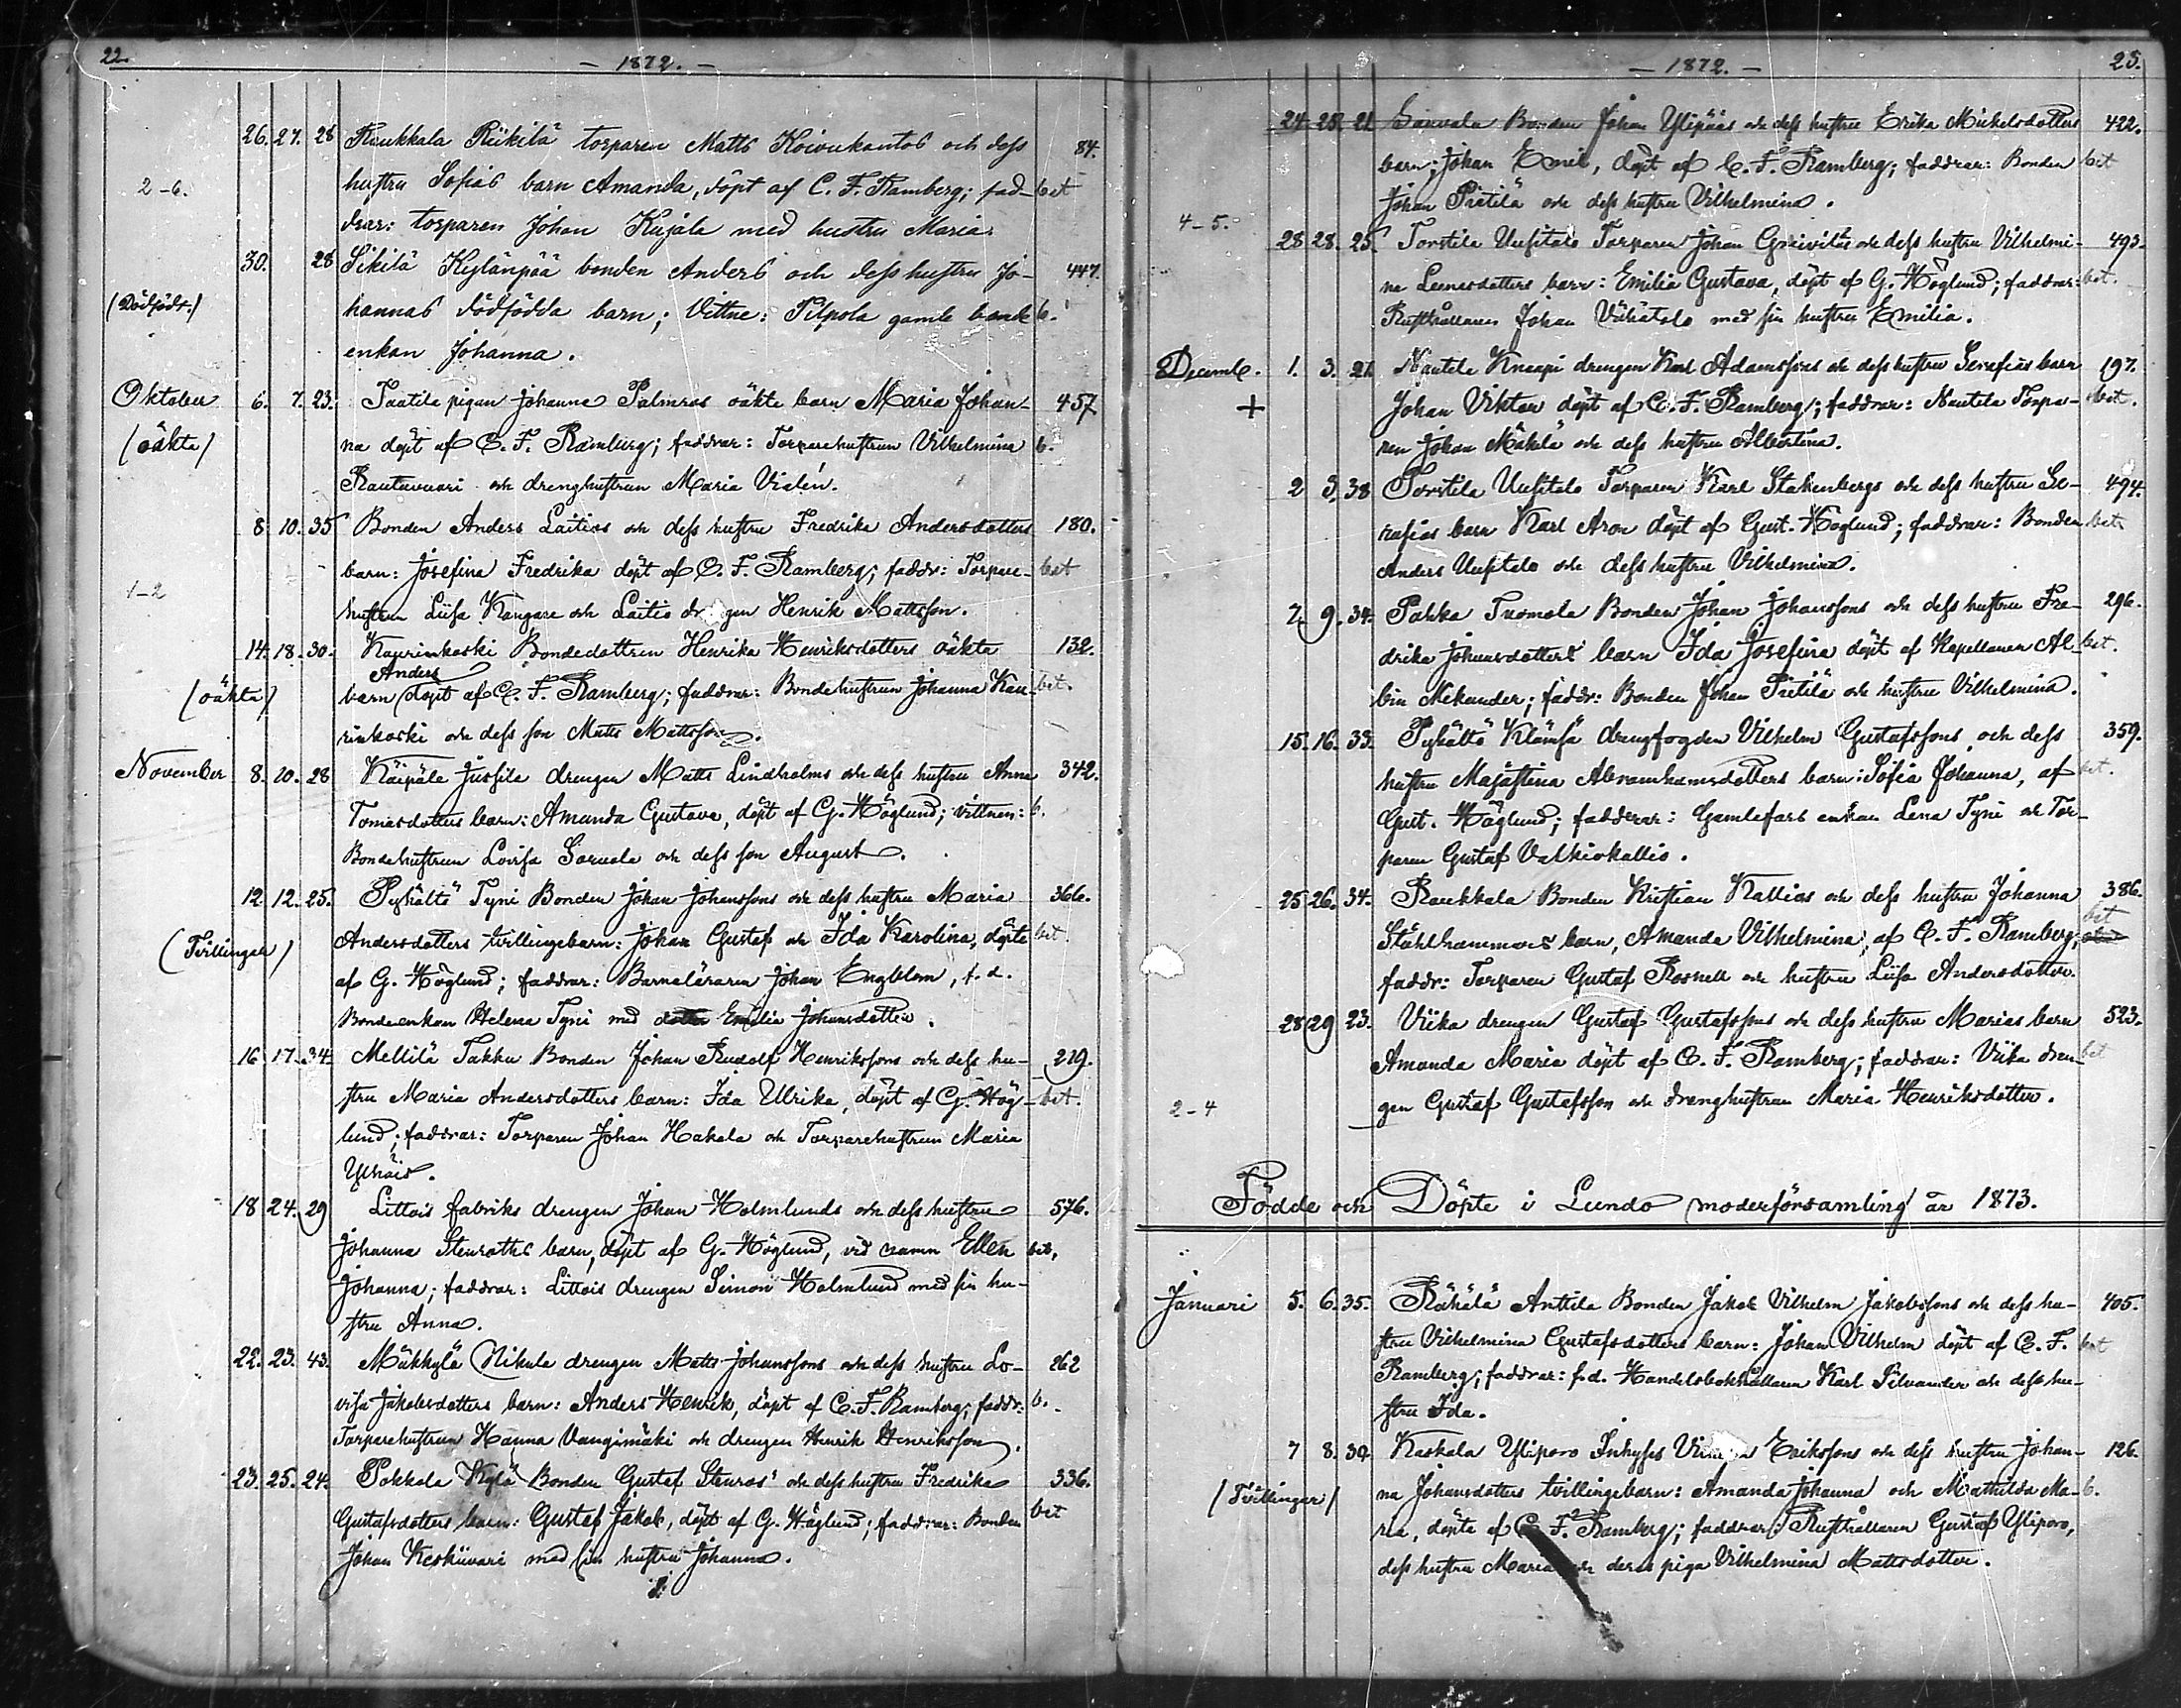 22.
- 1872. -
26. 27. 28 Raukkala Riikilä torparen Matts Koivukantos och dess 84.
2-6. hustru Sofias barn Amanda, döpt af C. F. Ramberg; fad- bet
drar: torparen Johan Kujala med hustru Maria.
30. 28 Sikilä Kylänpää bonden Anders och dess hustru Jo- 447.
(Dödfödt.) hannas dödfödda barn; Vittne: Pilpola gamla bonde b.
enkan Johanna.
Oktober 6. 7. 23. Saatila pigan Johanna Palmros oäkta barn Maria Johan- 457
(oäkta) na döpt af C. F. Ramberg; faddrar: Torparehustrun Vilhelmina b.
Rautavuori och dränghustrun Maria Vialén.
8. 10. 35 Bonden Anders Laitios och dess hustru Fredrika Andersdotters 180.
barn: Josefina Fredrika döpt af C. F. Ramberg; faddr: Torpare- bet
1-2 hustrun Liisa Kangare och Laitis drgen Henrik Mattsson.
14. 18. 30. Kaurinkoski Bondedottren Henrika Henriksdotters oäkta 132.
Anders
(oäkta) barn döpt af C. F. Ramberg; faddrar: Bondehustrun Johanna Kau- bet.
rinkoski och dess son Matts Mattsson.
November 8. 20. 28 Käipäle Jussila drengen Matts Lindholms och dess hustru Anna 342.
Tomasdotters barn: Amanda Gustava, döpt af G. Höglund; vittnen: b.
Bondehustrun Lovisa Sorvala och dess son August.
12. 12. 25. Pyhältö Tyni Bonden Johan Johanssons och dess hustru Maria 366.
(Tvillingar) Andersdotters tvillingebarn: Johan Gustaf och Ida Karolina, döpte bet.
af G. Höglund; faddrar: Barnaläraren Johan Engblom, f. d.
Bondeenkan Helena Tyni med Emelia Johansdotter.
16. 17. 34. Mellilä Takku Bonden Johan Rudolf Henrikssons och dess hu- 219.
stru Maria Andersdotters barn: Ida Ulrika, döpt af G. Hög- bet.
lund; faddrar: Torparen Johan Hakala och Torparehustrun Maria
Ylhäis.
18 24. 29 Littois fabriks drengen Johan Holmlunds och dess hustru 576.
Johanna Stenroths barn, döpt af G. Höglund, vid namn Ellen bet.
Johanna; faddrar: Littois drengen Simon Holmlund med sin hu-
stru Anna.
22. 23. 43. Mäkkylä Nikula drengen Matts Johanssons och dess hustru Lo- 262
visa Jakobsdotters barn: Anders Henrik, döpt af C. F. Ramberg; faddr: b.
Torparehustrun Hanna Vangimäki och drengen Henrik Henriksson.
23. 25. 24. Pokkola Kylä Bonden Gustaf Stenros' och dess hustru Fredrika 336.
Gustafsdotters barn: Gustaf Jakob, döpt af G. Höglund; faddrar: Bonden bet
Johan Keskiivari med sin hustru Johanna.
- 1872. -
23.
24. 25. 21 Sauvala Bonden Johan Ylipääs och dess hustru Erika Mickelsdotters 422.
barn; Johan Emil, döpt af C. F. Ramberg; faddrar: Bonden bet
Johan Pietilä och dess hustru Vilhelmina.
4-5.
28 28. 25 Torstila Uusitalo Torparen Johan Grävilas och dess hustru Vilhelmi- 493.
na Leenasdotters barn: Emilia Gustava, döpt af G. Höglund; faddrar: bet.
Rusthållaren Johan Vähätalo med sin hustru Emilia.
Decemb. 1. 3. 21. Nautela Knaapi drengen Karl Adamssons och dess hustru Serafias barn 197.
+ Johan Viktor döpt af C. F. Ramberg; faddrar: Nautela Torpa- bet.
ren Johan Mäkilä och dess hustru Albertina.
2 3. 38 Torstila Uusitalo Torparen Karl Stakenbergs och dess hustru Se- 494.
rafias barn Karl Aron döpt af Gust. Höglund; faddrar: Bonden bet
Anders Uusitalo och dess hustru Vilhelmina.
7. 9. 34. Pakka Tuomola Bonden Johan Johanssons och dess hustru Fre- 296.
drika Johansdotters barn Ida Josefina döpt af Kapellanen Al- bet.
bin Mekander; faddr: Bonden Johan Pietilä och hustru Vilhelmina.
15. 16. 33. Pyhältö Klämsä drengfogden Vilhelm Gustafssons och dess 359.
hustru Majastina Abramhamsdotters barn: Sofia Johanna, af bet.
Gust. Höglund; fadderar: Gamlefars enkan Lena Tyni och Tor-
paren Gustaf Valkiokallio.
25 26. 34. Raukkala Bonden Kristian Kallios och dess hustru Johanna 386.
Ståhlhammars barn, Amanda Vilhelmina, af C. F. Ramberg; bet
faddr: Torparen Gustaf Rosnell och hustru Liisa Andersdotter.
28 29 23. Viika drengen Gustaf Gustafssons och dess hustru Marias barn 523.
Amanda Maria döpt af C. F. Ramberg; faddrar: Viika dren- bet
2-4 gen Gustaf Gustafsson och drenghustrun Maria Henriksdotter.
Födde och Döpte i Lundo moderförsamling år 1873.
Januari 5. 6. 35. Rähälä Anttila Bonden Jakob Vilhelm Jakobssons och dess hu- 405.
stru Vilhelmina Gustafsdotters barn: Johan Vilhelm döpt af C. F. bet
Ramberg; faddrar: f.d. Handelsbokhållaren Karl Silvander och dess hu-
stru Ida.
7 8. 30. Kaskala Ylipovo Inhyses Erikssons och dess hustru Johan- 126.
(Tvillingar) na Johansdotters tvillingebarn: Amanda Johanna och Mathilda Ma- b.
ria, döpte af C. F. Ramberg; faddrar: Rusthållaren Gustaf Ylipovo,
dess hustru Maria och deras piga Vilhelmina Mattsdotter.